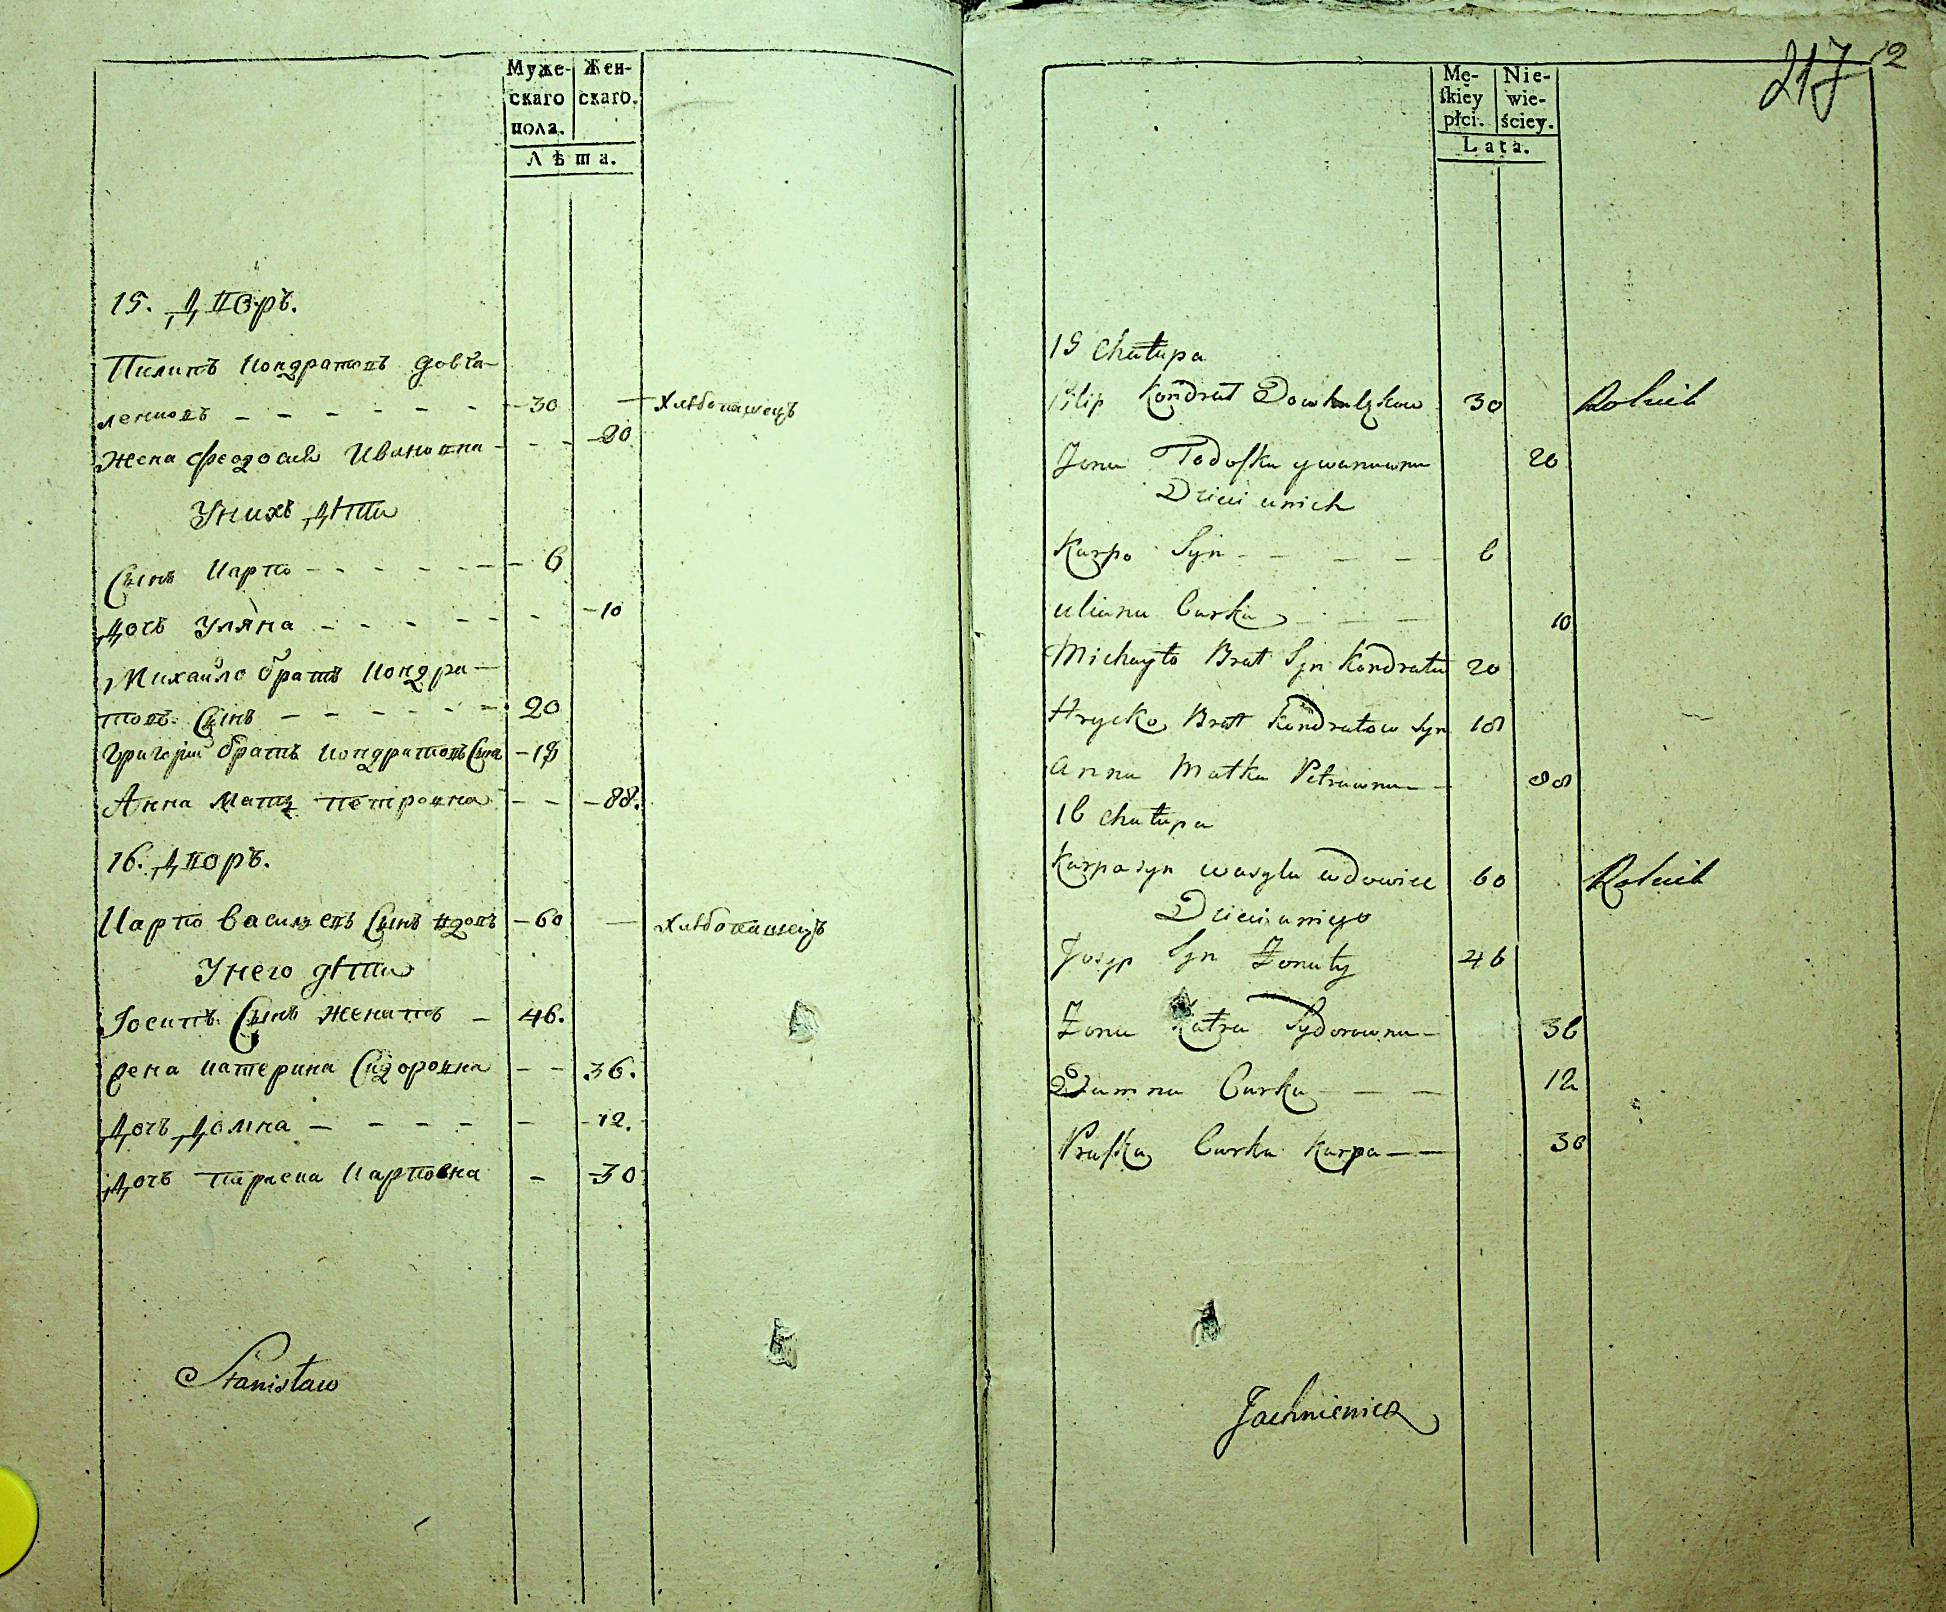 Муже-
скаго
пола.
Жен-
скаго.
Лѣта.
15. Дворъ.
Пилипъ Кондратовъ Довга-
ленковъ - - - - - - 30 — хлѣбопашецъ
Жена Феодосия Ивановна - - - 20
У нихъ дѣти
Сынъ Карпо - - - - - - 6
Дочь Уляна - - - - - - 10
Михайло братъ Кондра-
товъ Сынъ - - - - - - 20
Григорий братъ Кондратовъ Сынъ - 18
Анна Матъ Петровна - - - 88.
16. Дворъ.
Карпо Василевъ Сынъ вдовъ - 60 — хлѣбопашецъ
У него дѣти
Іосипъ Сынъ Женатъ - 46.
Жена Катерина Сидоровна - - 36.
Дочь Домна - - - - - - 12.
Дочь Параска Карповна - 30
Stanisław
217 12
Mę-
skiey
płci.
Nie-
wie-
ściey.
Lata.
15 Chałupa
Filip Kondrat Dowhalzkow 30 Rolnik
Zona Todoska ywanowna 20
Dzieci unich
Karpo Syn - - - 6
uliana Curka - - - 10
Michayło Brat Syn Kondrata 20
Hrycko Bratt Kondratow Syn 18
anna Matka Petrowna - - 88
16 chałupa
Karpo syn wasyla wdowiec 60 Rolnik
Dzieci uniego
Josyp Syn Zonaty 46
Zona Katra Sydorowna - 36
Damna Curka - - - 12
Praska Curka Karpa - - 30
Jachniewicz